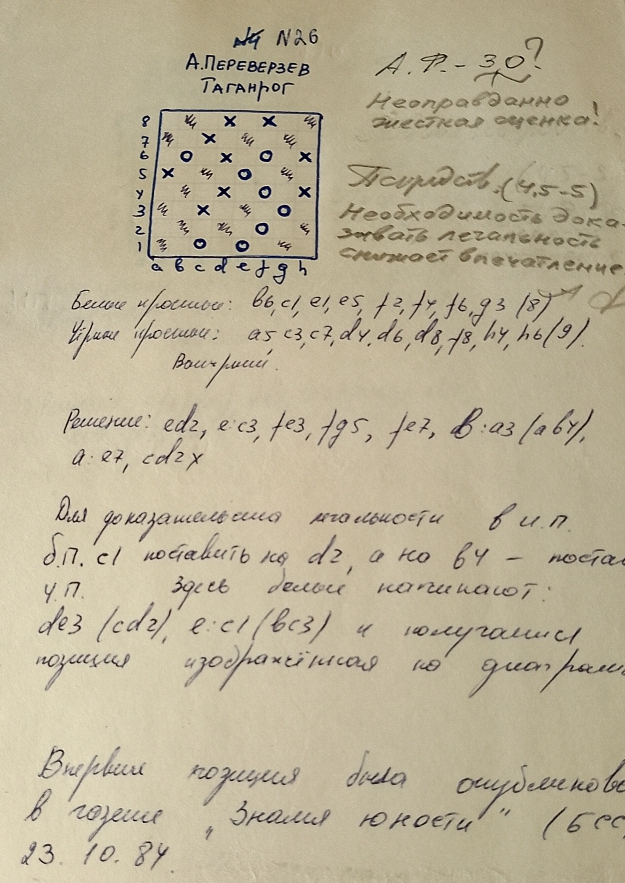 N26
А. ПЕРЕВЕРЗЕВ
ТАГАНРОГ
А.Ф. - 30?
Неоправданно
жёсткая оценка!
Посредств. (4,5-5)
Необходимость дока-
зывать легальность
снижает впечатление
8
7
6
5
4
3
2
1
a b c d e f g h
Белые простые: b6, c1, e1, e5, f2, f4, f6, g3 (8)
Чёрные простые: a5, c3, c7, d4, d6, d8, f8, h4, h6 (9).
Выигрыш.
Решение: ed2, e:c3, fe3, fg5, fe7, b:a3 (ab4),
a:e7, cd2x
Для доказательства легальности в и.п.
б.п. c1 поставить на d2, а на b4 –
ч.п. Здесь белые начинают:
de3 (cd2), e:c1 (bc3) и получилась
позиция изображённая на
Впервые позиция была
в газете „Знамя юности" (БСС
23.10.84.